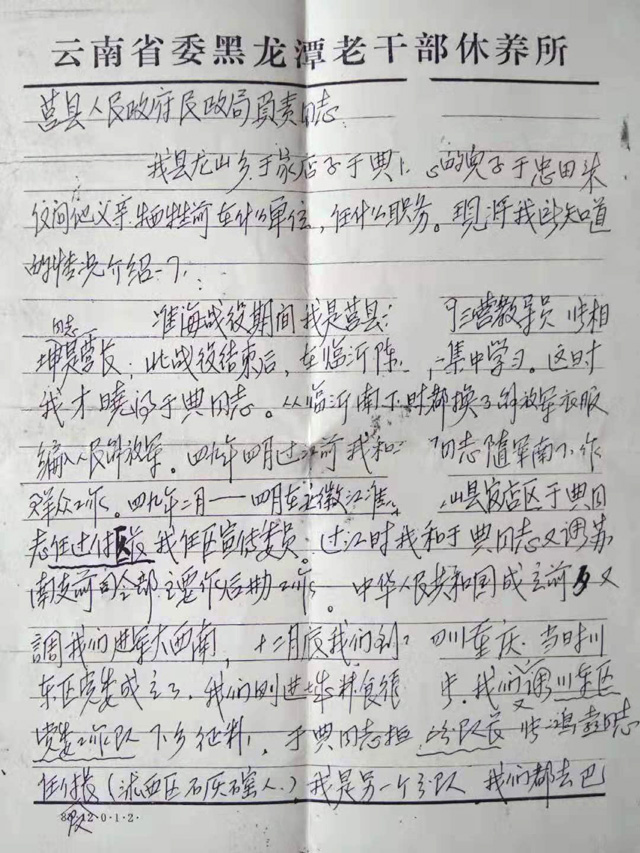 云南省委黑龙潭老干部休养所
莒县人民政府民政局负责同志:
我县龙山乡于家店子于典 的儿子于忠田来
仪问他父亲牺牲前在什么单位,任什么职务。现将我所知道
的情况介绍一下:
淮海战役期间我是莒县 三营教导员
同志
是营长,此战役结束后,在临沂 集中学习。这时
我才晓得于典同志。从临沂南下时都换了解放军衣服
编入人民解放军。四九年四月过江前我和 同志随军南下作
群众工作。四九年二月——四月在 江淮 山县 店区于典同
志任过付区长我任区宣传委员。过江时我和于典同志又调苏
南支前司令部主要作后勤工作。中华人民共和国成立前又
調我们进军大西南,十二月底我们到 四川重庆,当时川
东区党委成立了,我们则进 粮食 我们又调川东区
党委工作队下乡征粮,于典同志担 分队长 同志
任付 (沭西区石灰窑人)我是另一个分队 我们都去巴
队